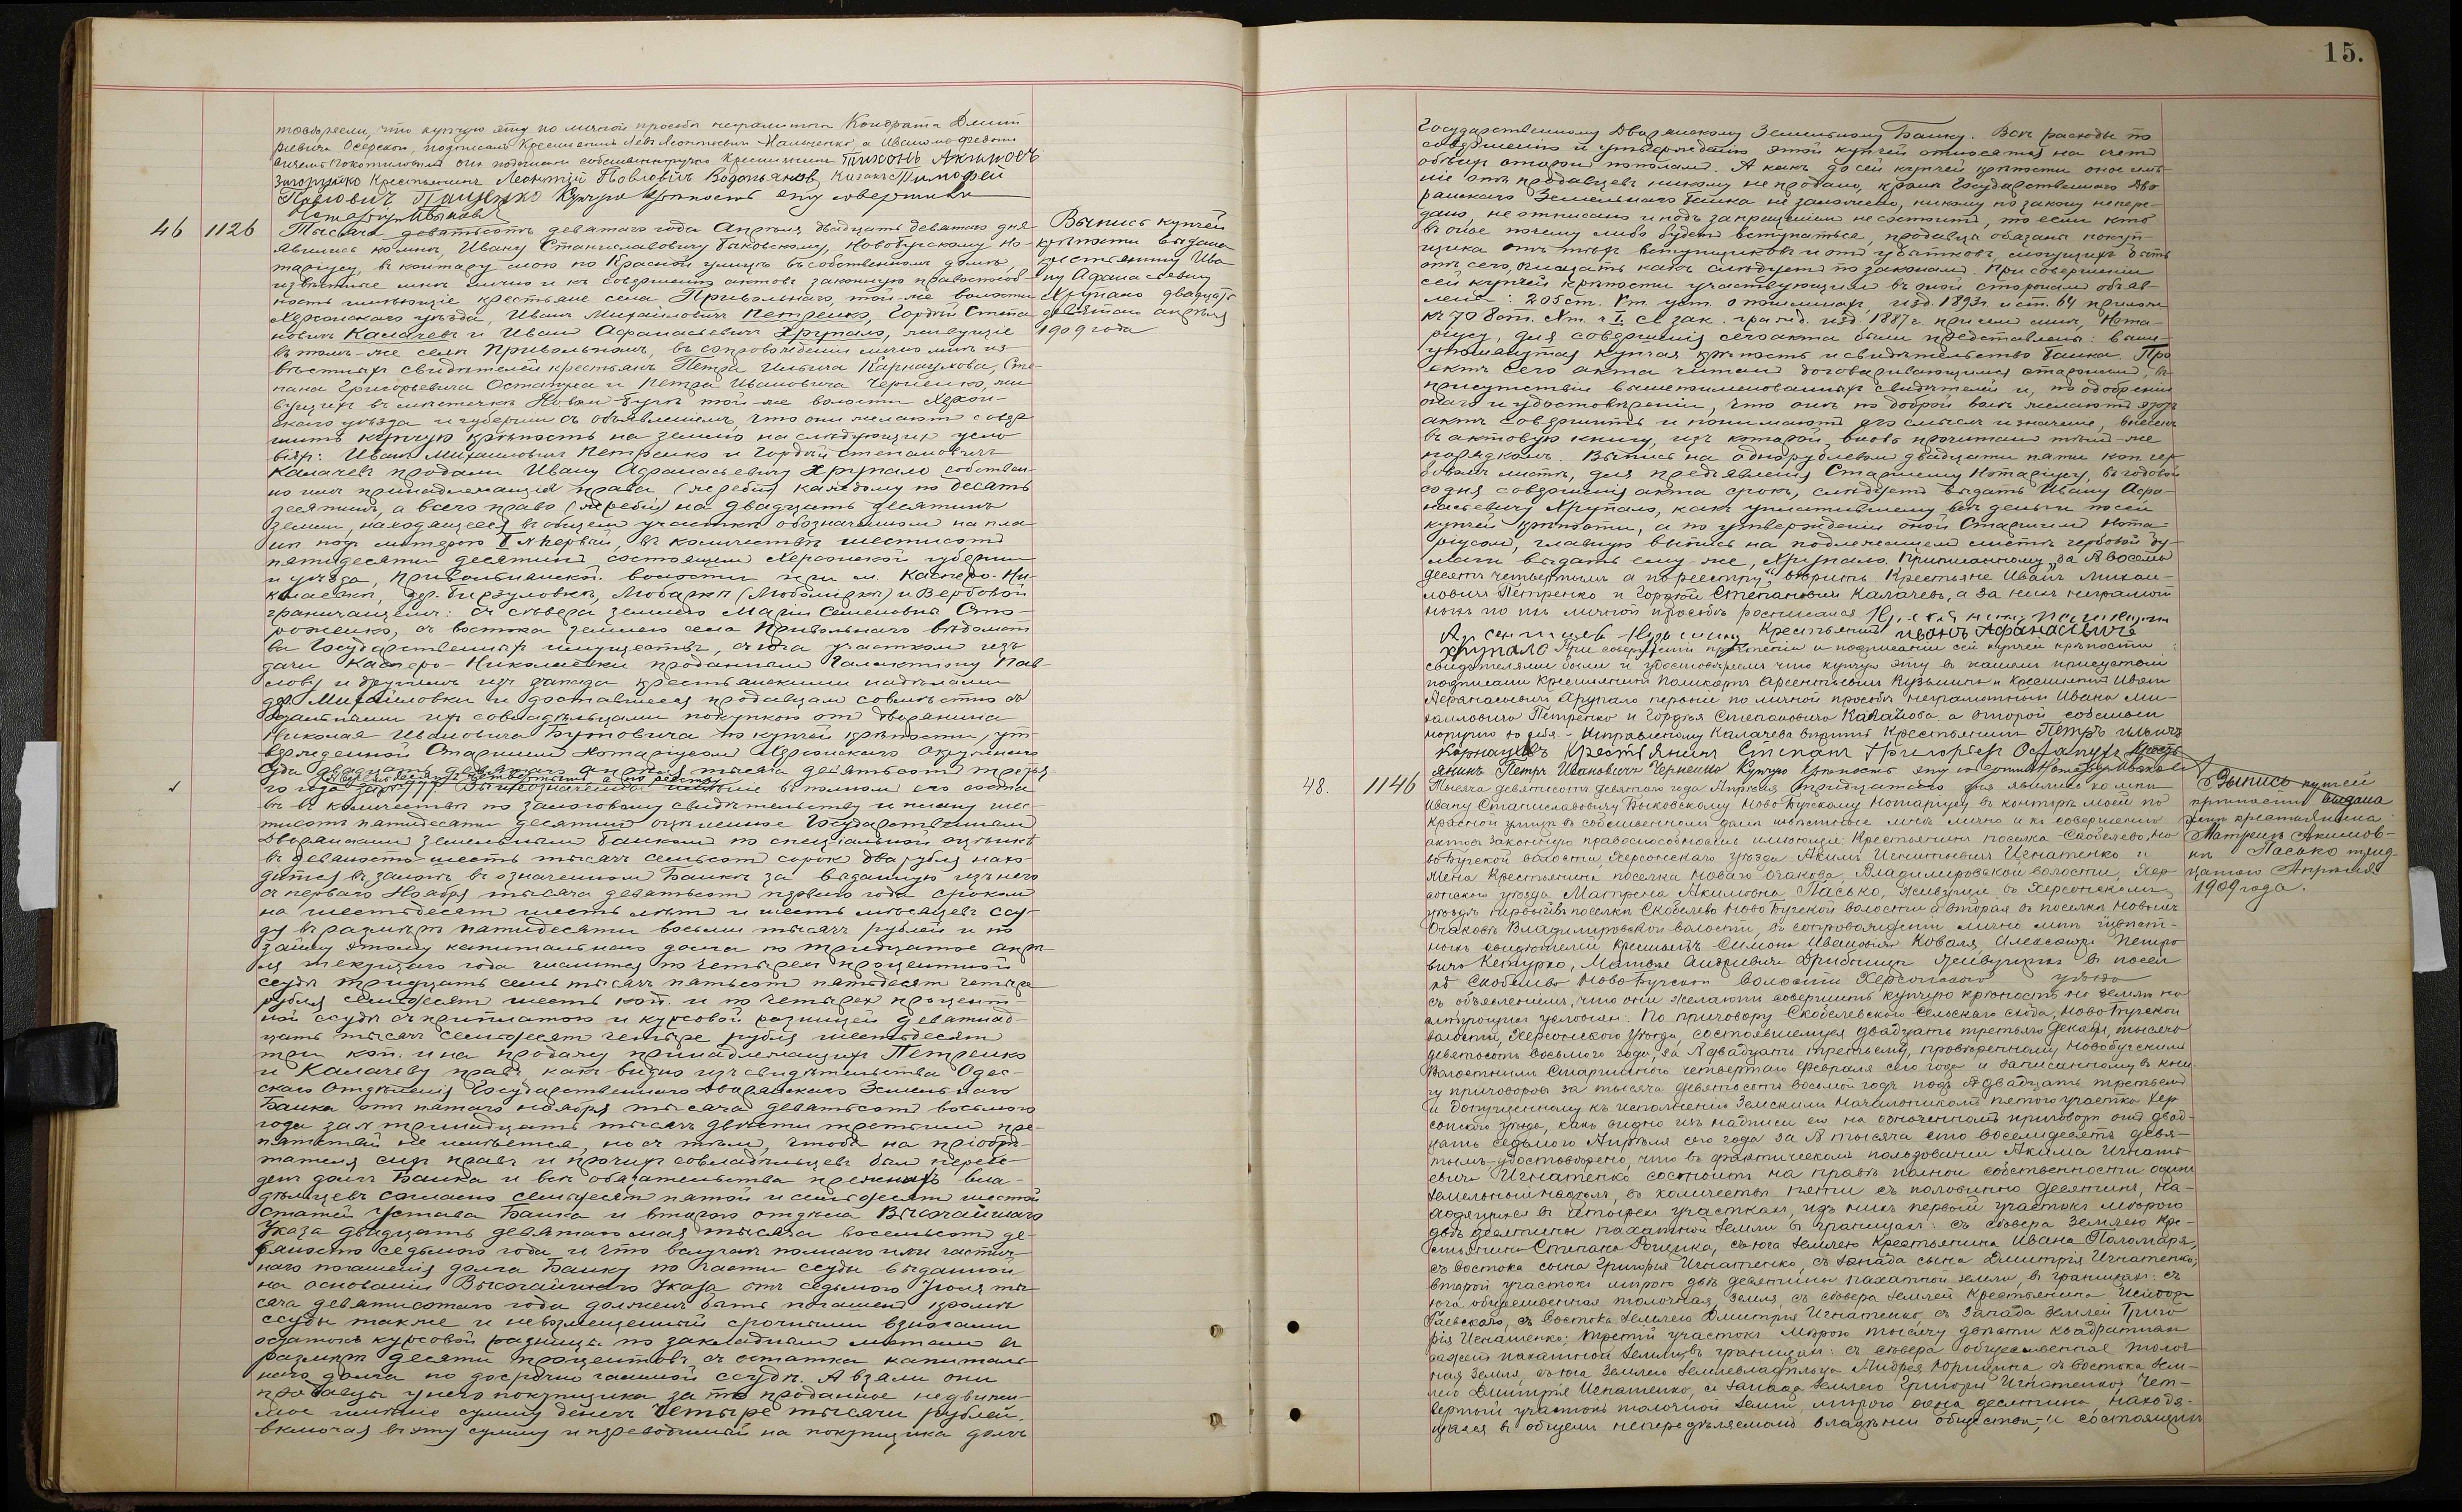 товѣряемъ, что купчую эту по личной просьбѣ неграмотнаго Кондрата Дмит
ріевича Осерскаго, подписалъ Крестьянинъ Левъ Леонтьевичъ
собственноручно Крестьянинъ Тихонъ Акимовъ
Загоруйко Крестьянинъ Леонтій Павловичъ Водопьяновъ Казакъ Тимофей
Павловичъ Паценко Купчую крѣпость эту совершилъ
Нотаріусъ Быковскій
46 1126 Тысяча девятьсотъ девятаго года Апрѣля двадцать девятаго дня
явились ко мнѣ, Ивану Станиславовичу Быковскому, Новобугскому Но-
таріусу, въ контору мою по Красной улицѣ въ собственномъ домѣ,
извѣстные мнѣ лично и къ совершенію актовъ законную правоспособ-
ность имѣющіе крестьяне села Привольнаго, той-же волости
Херсонскаго уѣзда, Иванъ Михайловичъ Петренко, Гордѣй Степа
новичъ Калачевъ и Иванъ Афанасьевичъ Хрупало, живущіе
въ томъ-же селѣ Привольномъ, въ сопровожденіи лично мнѣ из-
вѣстныхъ свидѣтелей крестьянъ Петра Ильича Карнаухова, Сте-
пана Григорьевича Остапука и Петра Ивановича Черненко, жи
вущихъ въ мѣстечкѣ Новомъ Бугѣ той-же волости Херсон-
скаго уѣзда и губерніи съ объявленіемъ, что они желаютъ совер
шить купчую крѣпость на землю на слѣдующихъ усло
віяхъ: Иванъ Михайловичъ Петренко и Гордѣй Степановичъ
Калачевъ продали Ивану Афанасьевичу Хрупало собствен-
но имъ принадлежащія права (жеребіи) каждому по десять
десятинъ, а всего право (жребій) на двадцать десятинъ
земли, находящейся въ общемъ участкѣ обозначенномъ на пла
нѣ подъ литерою первый, въ количествѣ шестисотъ
пятидесяти десятинъ состоящемъ Херсонской губерніи
и уѣзда, Привольнянской волости при м. Касперо-Ни-
колаевкѣ, дер. Бирзуловкѣ, Любаркѣ (Любомиркѣ) и Вербовой
граничащемъ: съ сѣвера землею Маріи Семеновны Сто-
роженко, съ востока землею села Привольнаго вѣдомст
ва Государственныхъ имуществъ, съ юга участкомъ изъ
дачи Касперо-Николаевки проданнымъ Галактіону Пав-
лову и другимъ и съ запада крестьянскими надѣлами
дер. Михайловки и доставшееся продавцамъ совмѣстно съ
другими ихъ совладѣльцами покупкою отъ дворянина
Николая Ивановича Бутовича по купчей крѣпости, ут-
вержденной Старшимъ Нотаріусомъ Херсонскаго Окружнаго
Суда двадцать девятаго Апрѣля тысяча девятьсотъ третья
го года Вышеозначенное имѣніе въ полномъ его соста
вѣ въ количествѣ по залоговому свидѣтельству и плану шес-
тисотъ пятидесяти десятинъ оцѣненное Государственнымъ
Дворянскимъ Земельнымъ Банкомъ по спеціальной оцѣнкѣ
въ девяносто шесть тысячъ семьсотъ сорокъ два рубля нахо-
дится въ залогѣ въ означенномъ Банкѣ за выданную изъ него
съ перваго Ноября тысяча девятьсотъ перваго года срокомъ
на шестьдесятъ шесть лѣтъ и шесть мѣсяцевъ ссу-
ду въ размѣрѣ пятидесяти восьми тысячъ рублей и по
займу этому капитальнаго долга по тридцатое апрѣ-
ля текущаго года числится по четырех процентной
ссудѣ тридцать семь тысячъ пятьсотъ пятьдесятъ четыре
рубля семьдесятъ шесть коп. и по четырех процент-
ной ссудѣ съ приплатою и курсовой разницей девятнад-
цать тысячъ семьдесятъ четыре рубля шестьдесятъ
три коп. и на продажу принадлежащихъ Петренко
и Калачеву правъ какъ видно изъ свидѣтельства Одес-
скаго Отдѣленія Государственнаго Дворянскаго Земельнаго
Банка отъ пятаго ноября тысяча девятьсотъ восьмого
года за № тринадцать тысячъ двѣсти третьимъ пре-
пятствій не имѣется, но съ тѣмъ, чтобы на пріобрѣ-
тателя сихъ правъ и прочихъ совладѣльцевъ былъ переве-
денъ долгъ Банка и всѣ обязательства прежнихъ вла-
дѣльцевъ согласно семьдесятъ пятой и семьдесятъ шестой
статей Устава Банка и второго отдѣла Высочайшаго
Указа двадцать девятаго мая тысяча восемьсотъ де-
вяносто седьмого года и что въ случаѣ полнаго или частич-
наго погашенія долга Банку по части ссуды выданной
на основаніи Высочайшаго Указа отъ седьмого Іюля ты-
сяча девятисотаго года долженъ быть погашенъ кромѣ
ссуды также и невозмещенный срочными взносами
остатокъ курсовой разницы по закладнымъ листамъ въ
размѣрѣ десяти процентовъ съ остатка капиталь-
наго долга по досрочно гасимой ссудѣ. А взяли они
продавцы у него покупщика за то проданное недвижи-
мое имѣніе сумму денегъ Четыре тысячи рублей,
включая въ эту сумму и переводимый на покупщика долгъ
Выпись купчей
крѣпости выдана
крестьянину Ива
ну Афанасьевичу
Хрупало двадцать
девятаго апрѣля
1909 года
15.
Государственному Дворянскому Земельному Банку. Всѣ расходы по
совершенію и утвержденію этой купчей относятся на счетъ
обѣихъ сторонъ пополамъ. А какъ до сей купчей крѣпости оное имѣ-
ніе отъ продавцевъ никому не продано, кромѣ Государственнаго Дво
рянскаго Земельнаго Банка не заложено, никому по закону непере-
дано, не отписано и подъ запрещеніемъ не состоитъ, то если кто
въ оное почему либо будетъ вступаться, продавцы обязаны покуп-
щика отъ тѣхъ вступщиковъ и отъ убытковъ, могущихъ быть
отъ сего, очищать какъ слѣдуетъ по законамъ. При совершеніи
сей купчей крѣпости участвующимъ въ оной сторонамъ объяв-
лена: 205 ст. Vт. уст. о пошлинахъ, изд. 1893 г. и ст. 64 прилож.
къ 708 ст. Xт. ч I Св. зак. гражд. изд. 1887 г. при чемъ мнѣ, Нота-
ріусу, для совершенія сего акта были представлены: выше
упомянутая купчая крѣпость и свидѣтельство Банка. Про
эктъ сего акта читанъ договаривающимся сторонамъ, въ
присутствіи вышепоименованныхъ свидѣтелей и, по одобреніи
онаго и удостовѣреніи, что они по доброй волѣ желаютъ этотъ
актъ совершить и понимаютъ его смыслъ и значеніе, внесенъ
въ актовую книгу, изъ которой, вновь прочитанъ тѣмъ-же
порядкомъ. Выпись на однорублевомъ двадцати пяти коп. гер-
бовомъ листѣ, для предъявленія Старшему Нотаріусу, въ годовой
со дня совершенія акта срокъ, слѣдуетъ выдать Ивану Афа-
насьевичу Хрупало, какъ уплатившему всѣ деньги по сей
купчей крѣпости, а по утвержденіи оной Старшимъ Нота-
ріусомъ, главную выпись на подлежащемъ листѣ гербовой бу-
маги выдать ему-же, Хрупало. Приписанному „за № восемь
десятъ четвертымъ а по реестру" вѣрить Крестьяне Иванъ Михай-
ловичъ Петренко и Гордѣй Степановичъ Калачевъ, а за нихъ неграмот
ныхъ по ихъ личной просьбѣ росписался Крестьянинъ Поликарпъ
Арсентіевъ Кузьминъ Крестьянинъ Иванъ Афанасьевичъ
Хрупало При совершеніи прочтеніи и подписаніи сей купчей крѣпости
свидѣтелями были и удостовѣряемъ что купчую эту въ нашемъ присутствіи
подписали Крестьянинъ Поликарпъ Арсентьевичъ Кузьминъ и Крестьянинъ Иванъ
Афанасьевичъ Хрупало первый по личной просьбѣ неграмотныхъ Ивана Ми-
хайловича Петренко и Гордѣя Степановича Калачова а второй собствен
норучно за себя. – Исправленному Калачева вѣрить Крестьянинъ Петръ Ильичъ
Карнауховъ Крестьянинъ Степанъ Григорьевъ Остапукъ Кресть
янинъ Петръ Ивановичъ Черненко Купчую крѣпость эту совершилъ Нотаріусъ Быковскій
48. 1146 Тысяча девятисотъ девятаго года Апрѣля тридцатаго дня явились ко мнѣ
Ивану Станиславовичу Быковскому Ново Бугскому Нотаріусу въ контору мою по
Красной улицѣ въ собственномъ домѣ извѣстные мнѣ лично и къ совершенію
актовъ законную правоспособность имѣющіе: Крестьянинъ поселка Скобелево, Но
во Бугской волости, Херсонскаго уѣзда Акимъ Игнатьевичъ Игнатенко и
жена Крестьянина поселка Новаго Очакова, Владимировской волости, Хер
сонскаго уѣзда Матрена Акимовна Пасько, живущіе въ Херсонскомъ
уѣздѣ первый въ поселкѣ Скобелево Ново Бугской волости а вторая въ поселкѣ Новомъ
Очаковѣ Владимировской волости, въ сопровожденіи лично мнѣ извѣст-
ныхъ свидѣтелей крестьянъ Симона Ивановича Коваля, Александра Петро
вича Кетурко, Матвѣя Андреевича Дрибницы живущихъ въ посел
кѣ Скобелево Ново Бугской волости Херсонскаго уѣзда
съ объявленіемъ, что они желаютъ совершить купчую крѣпость на землю на
слѣдующихъ условіяхъ: По приговору Скобелевскаго Сельскаго схода, Ново Бугской
волости, Херсонскаго уѣзда, состоявшемуся двадцать третьяго Декабря, тысяча
девятьсотъ восьмого года, за № двадцать третьимъ, провѣренному Новобугскимъ
Волостнымъ Старшиною четвертаго Февраля сего года и записанному въ кни-
гу приговоровъ за тысяча девятьсотъ восьмой годъ подъ № двадцать третьимъ
и допущенному къ исполненію Земскимъ Начальникомъ пятого участка Хер
сонскаго уѣзда, какъ видно изъ надписи его на означенномъ приговорѣ отъ двад-
цать седьмого Апрѣля сего года за № тысяча сто восемьдесятъ девя-
тымъ-удостовѣрено, что въ фактическомъ пользованіи Акима Игнать
евича Игнатенко состоитъ на правѣ полной собственности одинъ
земельный надѣлъ, въ количествѣ пяти съ половиною десятинъ, на-
ходящихся въ четырехъ участкахъ, изъ нихъ первый участокъ мѣрою
двѣ десятины пахатной земли въ границахъ: съ сѣвера землею кре-
стьянина Степана Рощика, съ юга землею крестьянина Ивана Паламаря,
съ востока сына Григорія Игнатенко, съ запада сына Дмитрія Игнатенко;
второй участокъ мѣрою двѣ десятины пахатной земли, въ границахъ: съ
юга общественная толочная земля, съ сѣвера землей Крестьянина Исидора
Гаевскаго, съ востока землею Дмитрія Игнатенко, съ запада землей Григо
рія Игнатенко; третій участокъ мѣрою тысячу двѣсти квадратныхъ
сажень пахатной земли въ границахъ: съ сѣвера общественная толоч
ная земля, съ юга землею землевладѣльца Андрея Юрицына съ востока зем-
лею Дмитрія Игнатенко, съ запада землею Григорія Игнатенко, Чет-
вертый участокъ толочной земли, мѣрою одна десятина, находя-
щаяся въ общемъ непередѣляемомъ владѣніи общества, и состоящихъ
Выпись купчей
крѣпости выдана
женѣ крестьянина
Матренѣ Акимов-
нѣ Пасько трид-
цатаго Апрѣля
1909 года.